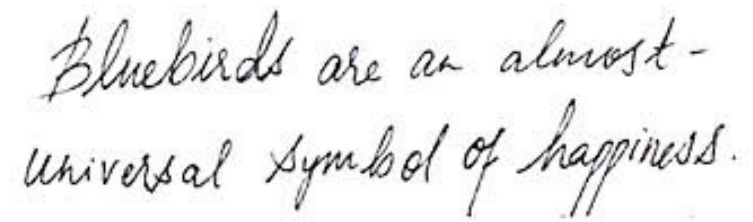 Bluebirds are an almost-
universal symbol of happiness.